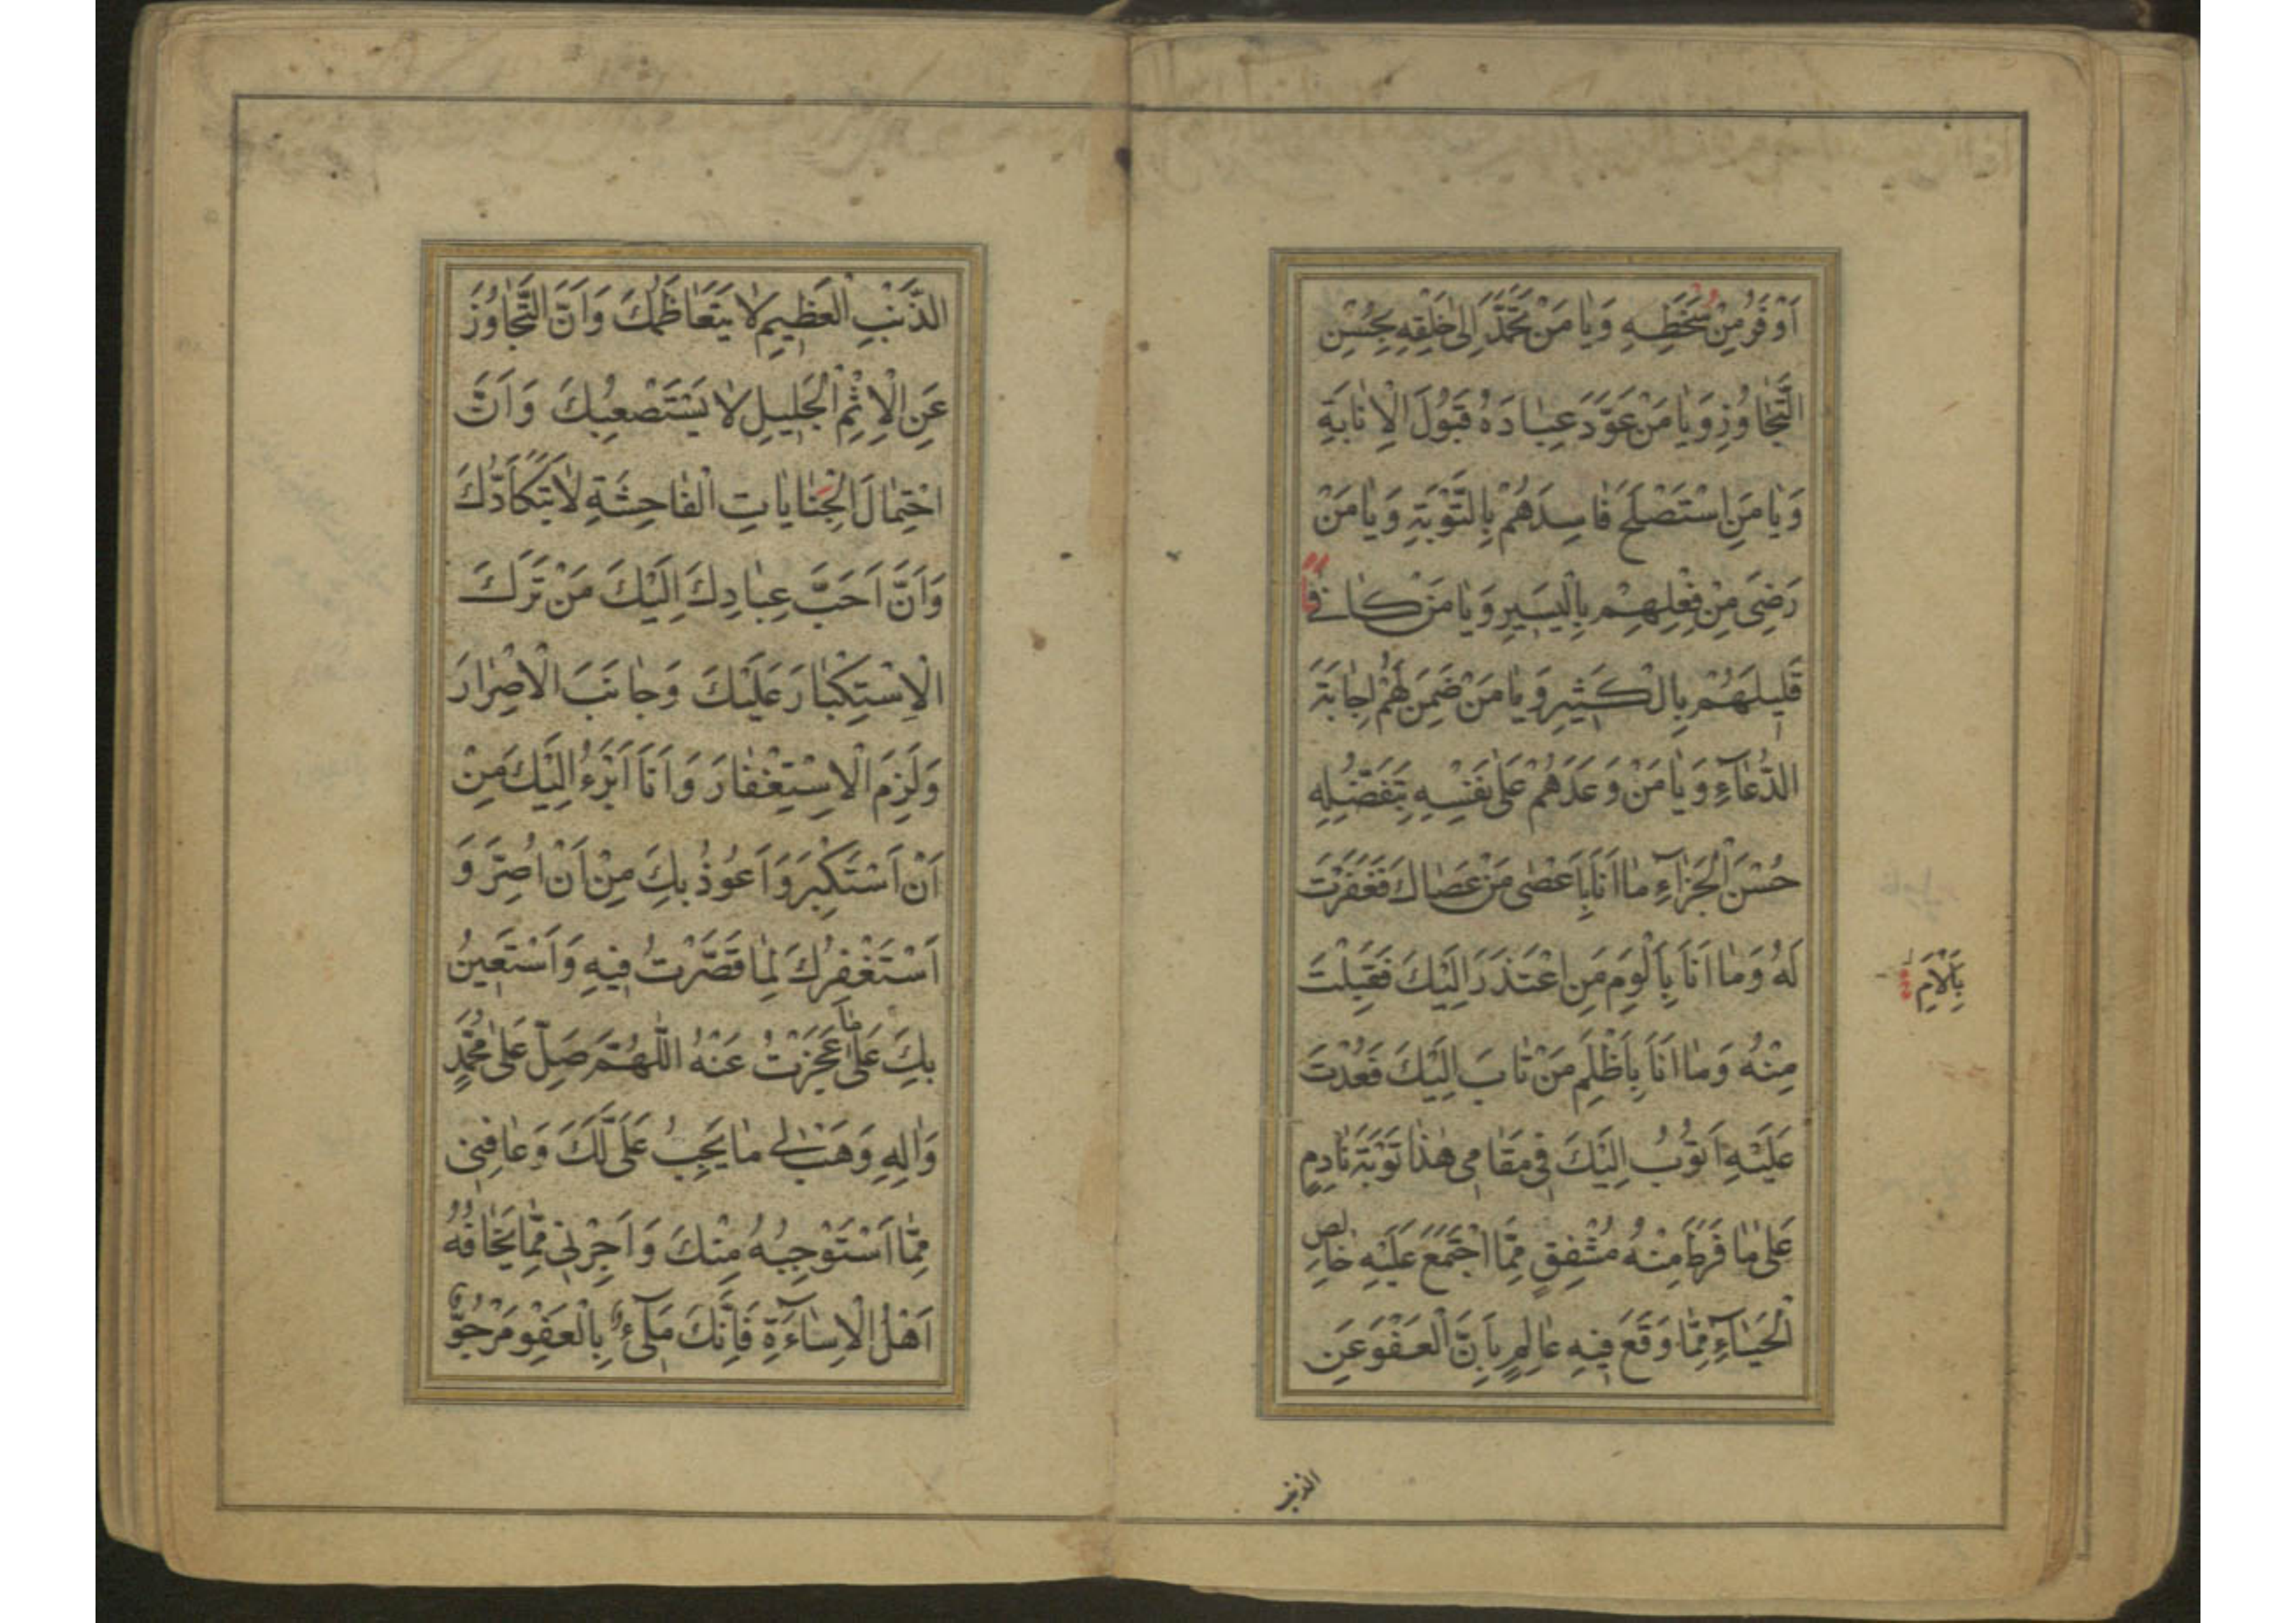 اَوْفَرُ مِنْ سَخَطِهِ وَيَا مَنْ تَحَمَّدَ اِلىٰ خَلْقِهِ بِحُسْنِ
التَّجَاوُزِ وَيَا مَنْ عَوَّدَ عِبَادَهُ قَبُولَ الْاِنَابَةِ
وَيَا مَنِ اسْتَصْلَحَ فَاسِدَهُمْ بِالتَّوْبَةِ وَيَا مَنْ
رَضِيَ مِنْ فِعْلِهِمْ بِالْيَسِيرِ وَيَا مَنْ كَافٰى
قَلِيلَهُمْ بِالْكَثِيرِ وَيَا مَنْ ضَمِنَ لَهُمْ اِجَابَةَ
الدُّعَآءِ وَيَا مَنْ وَعَدَهُمْ عَلىٰ نَفْسِهِ بِتَفَضُّلِهِ
حُسْنَ الْجَزَآءِ مَا اَنَا بِاَعْصٰى مَنْ عَصَاكَ فَغَفَرْتَ
لَهُ وَمَا اَنَا بِاَلْوَمِ مَنِ اعْتَذَرَ اِلَيْكَ فَقَبِلْتَ
بِاَلْاَمِ
مِنْهُ وَمَا اَنَا بِاَظْلَمِ مَنْ تَابَ اِلَيْكَ فَعُدْتَ
عَلَيْهِ اَتُوبُ اِلَيْكَ فِي مَقَامِي هٰذَا تَوْبَةَ نَادِمٍ
عَلىٰ مَا فَرَطَ مِنْهُ مُشْفِقٍ مِمَّا اجْتَمَعَ عَلَيْهِ خَالِصِ
الْحَيَآءِ مِمَّا وَقَعَ فِيهِ عَالِمٍ بِاَنَّ الْعَفْوَ عَنِ
الذنب
الذَّنْبِ الْعَظِيمِ لَا يَتَعَاظَمُكَ وَاَنَّ التَّجَاوُزَ
عَنِ الْاِثْمِ الْجَلِيلِ لَا يَسْتَصْعِبُكَ وَاَنَّ
احْتِمَالَ الْجِنَايَاتِ الْفَاحِشَةِ لَا يَتَكَاَّدُكَ
وَاَنَّ اَحَبَّ عِبَادِكَ اِلَيْكَ مَنْ تَرَكَ
الْاِسْتِكْبَارَ عَلَيْكَ وَجَانَبَ الْاِصْرَارَ
وَلَزِمَ الْاِسْتِغْفَارَ وَاَنَا اَبْرَءُ اِلَيْكَ مِنْ
اَنْ اَسْتَكْبِرَ وَاَعُوذُ بِكَ مِنْ اَنْ اُصِرَّ وَ
اَسْتَغْفِرُكَ لِمَا قَصَّرْتُ فِيهِ وَاَسْتَعِينُ
بِكَ عَلىٰ مَا عَجَزْتُ عَنْهُ اَللّٰهُمَّ صَلِّ عَلىٰ مُحَمَّدٍ
وَاٰلِهِ وَهَبْ لِي مَا يَجِبُ عَلَيَّ لَكَ وَعَافِنِي
مِمَّا اَسْتَوْجِبُهُ مِنْكَ وَاَجِرْنِي مِمَّا يَخَافُهُ
اَهْلُ الْاِسَآءَةِ فَاِنَّكَ مَلِيٓءٌ بِالْعَفْوِ مَرْجُوٌّ